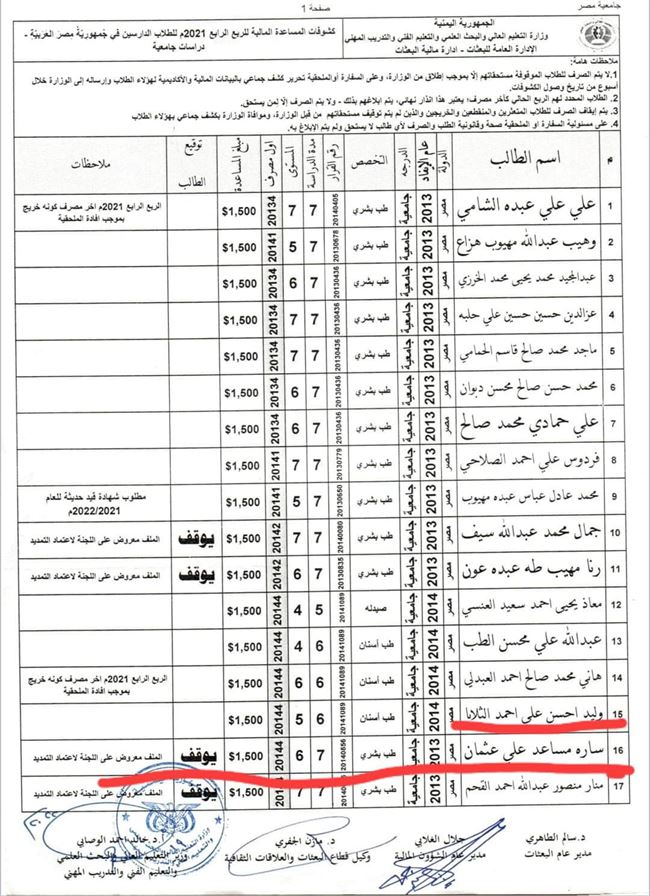 جامعية مصر
صفحة 1
الجمهورية اليمنية
وزارة التعليم العالي والبحث العلمي والتعليم الفني والتدريب المهني
الإدارة العامة للبعثات - ادارة مالية البعثات
كشوفات المساعدة المالية للربع الرابع 2021م للطلاب الدارسين في جمهورية مصر العربية - دراسات جامعية
ملاحظات هامة:
1. لا يتم الصرف للطلاب الموقوفة مستحقاتهم إلا بموجب إطلاق من الوزارة، وعلى السفارة أوالملحقية تحرير كشف جماعي بالبيانات المالية والأكاديمية لهؤلاء الطلاب وإرساله إلى الوزارة خلال
أسبوع من تاريخ وصول الكشوفات.
2. الطلاب المحدد لهم الربع الحالي كآخر مصرف؛ يعتبر هذا انذار نهائي، يتم ابلاغهم بذلك - ولا يتم الصرف إلا لمن يستحق.
3. يتم إيقاف الصرف للطلاب المتعثرين والمنقطعين والخريجين والذين لم يتم توقيف مستحقاتهم من قبل الوزارة، وموافاة الوزارة بكشف جماعي بهؤلاء الطلاب
4. على مسئولية السفارة او الملحقية صحة وقانونية الطلب والصرف لأي طالب لا يستحق ولم يتم الإبلاغ به.
م اسم الطالب الدولة عام الإيفاد الدرجه التخصص رقم القرار مدة الدراسة المستوى اول مصرف مبلغ المساعدة توقيع الطالب ملاحظات
1 علي علي عبده الشامي مصر 2013 جامعية طب بشري 20140405 7 7 20134 $1,500 الربع الرابع 2021م اخر مصرف كونه خريج بموجب افادة الملحقية
2 وهيب عبدالله مهيوب هزاع مصر 2013 جامعية طب بشري 20130678 7 5 20141 $1,500
3 عبدالمجيد محمد يحيى محمد الخرزي مصر 2013 جامعية طب بشري 20130436 7 6 20134 $1,500
4 عزالدين حسين حسين علي حلبه مصر 2013 جامعية طب بشري 20130436 7 7 20134 $1,500
5 ماجد محمد صالح قاسم الحمامي مصر 2013 جامعية طب بشري 20130436 7 7 20134 $1,500
6 محمد حسن صالح محسن دبوان مصر 2013 جامعية طب بشري 20130436 7 6 20134 $1,500
7 علي حمادي محمد صالح مصر 2013 جامعية طب بشري 20130436 7 6 20134 $1,500
8 فردوس علي احمد الصلاحي مصر 2013 جامعية طب بشري 20130779 7 7 20141 $1,500
9 محمد عادل عباس عبده مهيوب مصر 2013 جامعية طب بشري 20130650 7 5 20141 $1,500 مطلوب شهادة قيد حديثة للعام 2022/2021م
10 جمال محمد عبدالله سيف مصر 2013 جامعية طب بشري 20140080 7 7 20142 $1,500 يوقف الملف معروض على اللجنة لاعتماد التمديد
11 رنا مهيب طه عبده عون مصر 2013 جامعية طب بشري 20130835 7 6 20142 $1,500 يوقف الملف معروض على اللجنة لاعتماد التمديد
12 معاذ يحيى احمد سعيد العنسي مصر 2014 جامعية صيدله 20141089 5 4 20144 $1,500
13 عبدالله علي محسن الطب مصر 2014 جامعية طب أسنان 20141089 6 4 20144 $1,500
14 هاني محمد صالح احمد العبدلي مصر 2014 جامعية طب أسنان 20141089 6 6 20144 $1,500 الربع الرابع 2021م اخر مصرف كونه خريج بموجب افادة الملحقية
15 وليد احسن علي احمد الثلايا مصر 2014 جامعية طب أسنان 20141089 6 5 20144 $1,500
16 ساره مساعد علي عثمان مصر 2013 جامعية طب بشري 20140556 7 6 20144 $1,500 يوقف الملف معروض على اللجنة لاعتماد التمديد
17 منار منصور عبدالله احمد القحم مصر 2013 جامعية طب بشري 7 7 $1,500 يوقف الملف معروض على اللجنة لاعتماد التمديد
د.سالم الطاهري
مدير عام البعثات
جلال الغلابي
مدير عام الشؤون المالية
د. مازن الجفري
وكيل قطاع البعثات والعلاقات الثقافية
أ.د. خالد احمد الوصابي
وزير التعليم العالي والبحث العلمي
والتعليم الفني والتدريب المهني